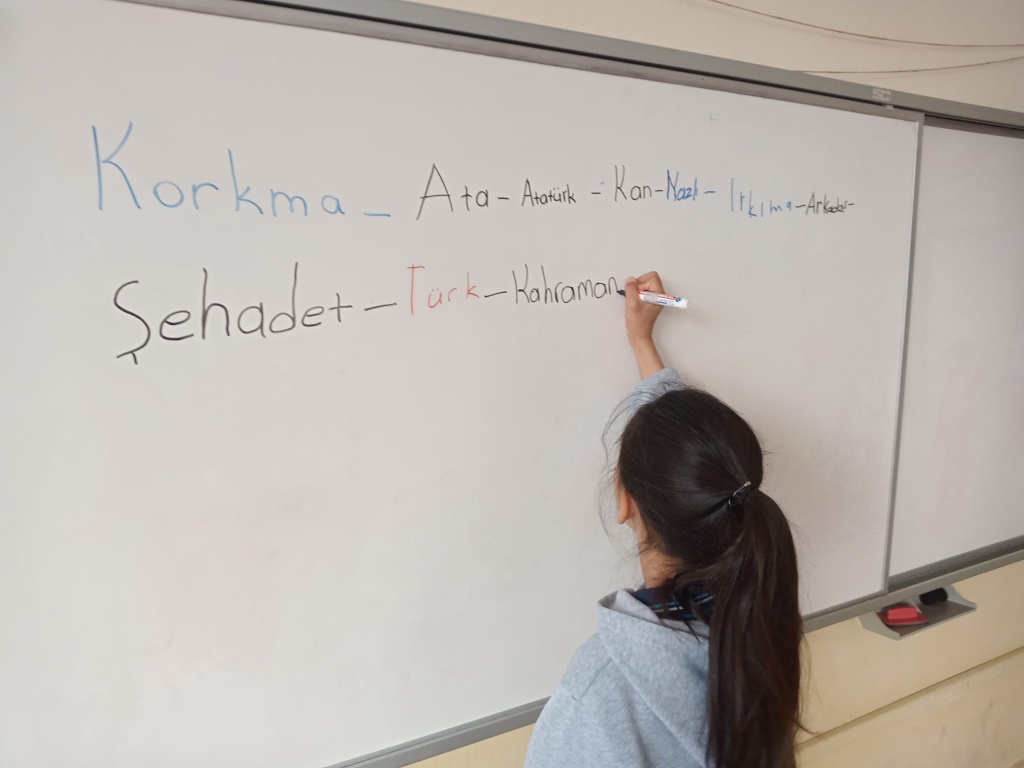 Korkma - Ata - Atatürk - Kan - Nazlı - Irkıma - Arkadaş -
Şehadet - Türk - Kahraman -